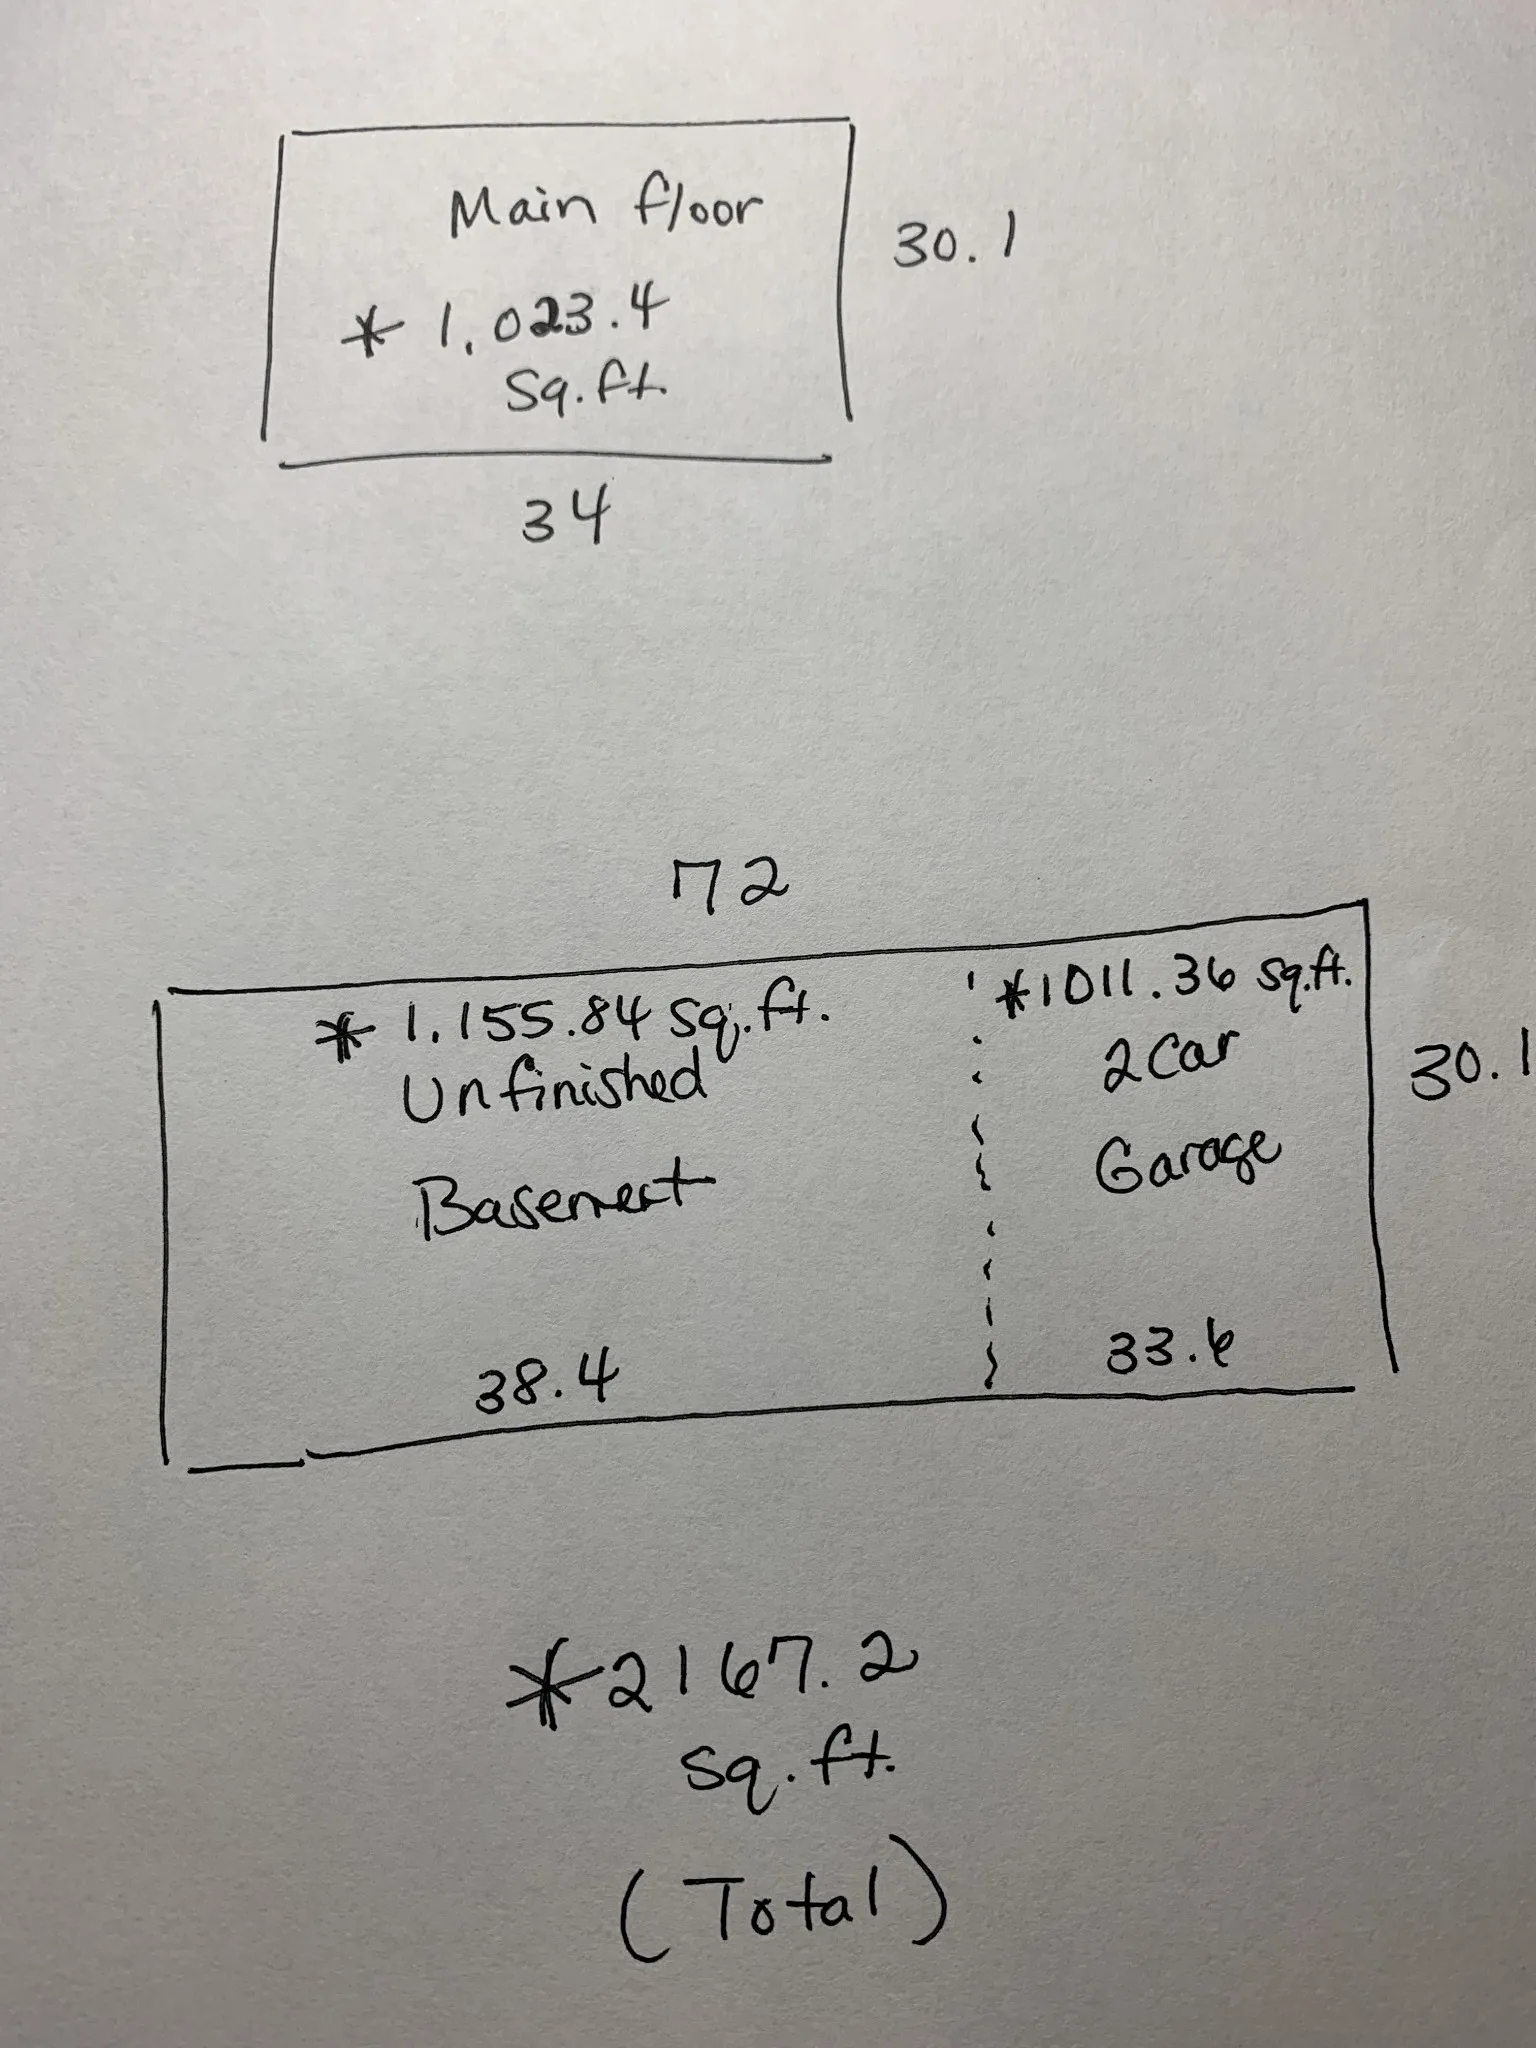 Main floor
* 1,023.4
Sq.ft.
30.1
34
72
* 1,155.84 sq.ft.
Unfinished
Basement
38.4
*1011.36 sq.ft.
2 Car
Garage
33.6
30.1
*2167.2
sq.ft.
(Total)